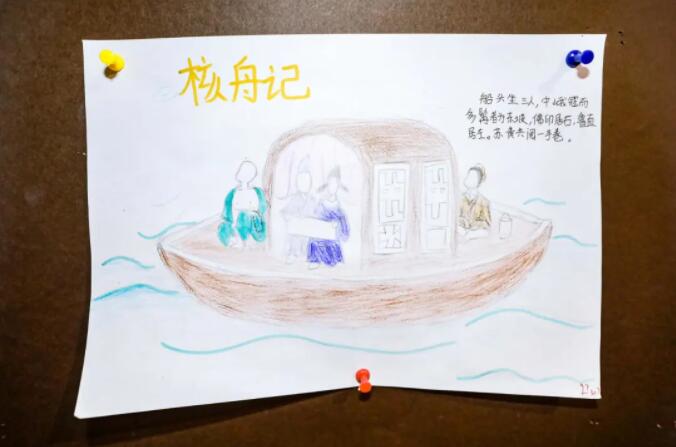 核舟记
船头坐三人,中峨冠而
多髯者为东坡,佛印居右,鲁直
居左。苏黄共阅一手卷。